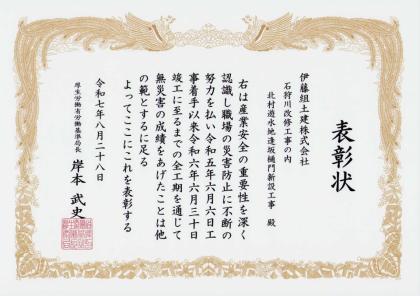 表彰状
伊藤組土建株式会社
石狩川改修工事の内
北村遊水地達坂樋門新設工事 殿
右は産業安全の重要性を深く
認識し職場の災害防止に不断の
努力を払い令和五年六月六日工
事着手以来令和六年六月三十日
竣工に至るまでの全工期を通じて
無災害の成績をあげたことは他
の範とするに足る
よってここにこれを表彰する
令和七年八月二十八日
厚生労働省労働基準局長 岸本 武史